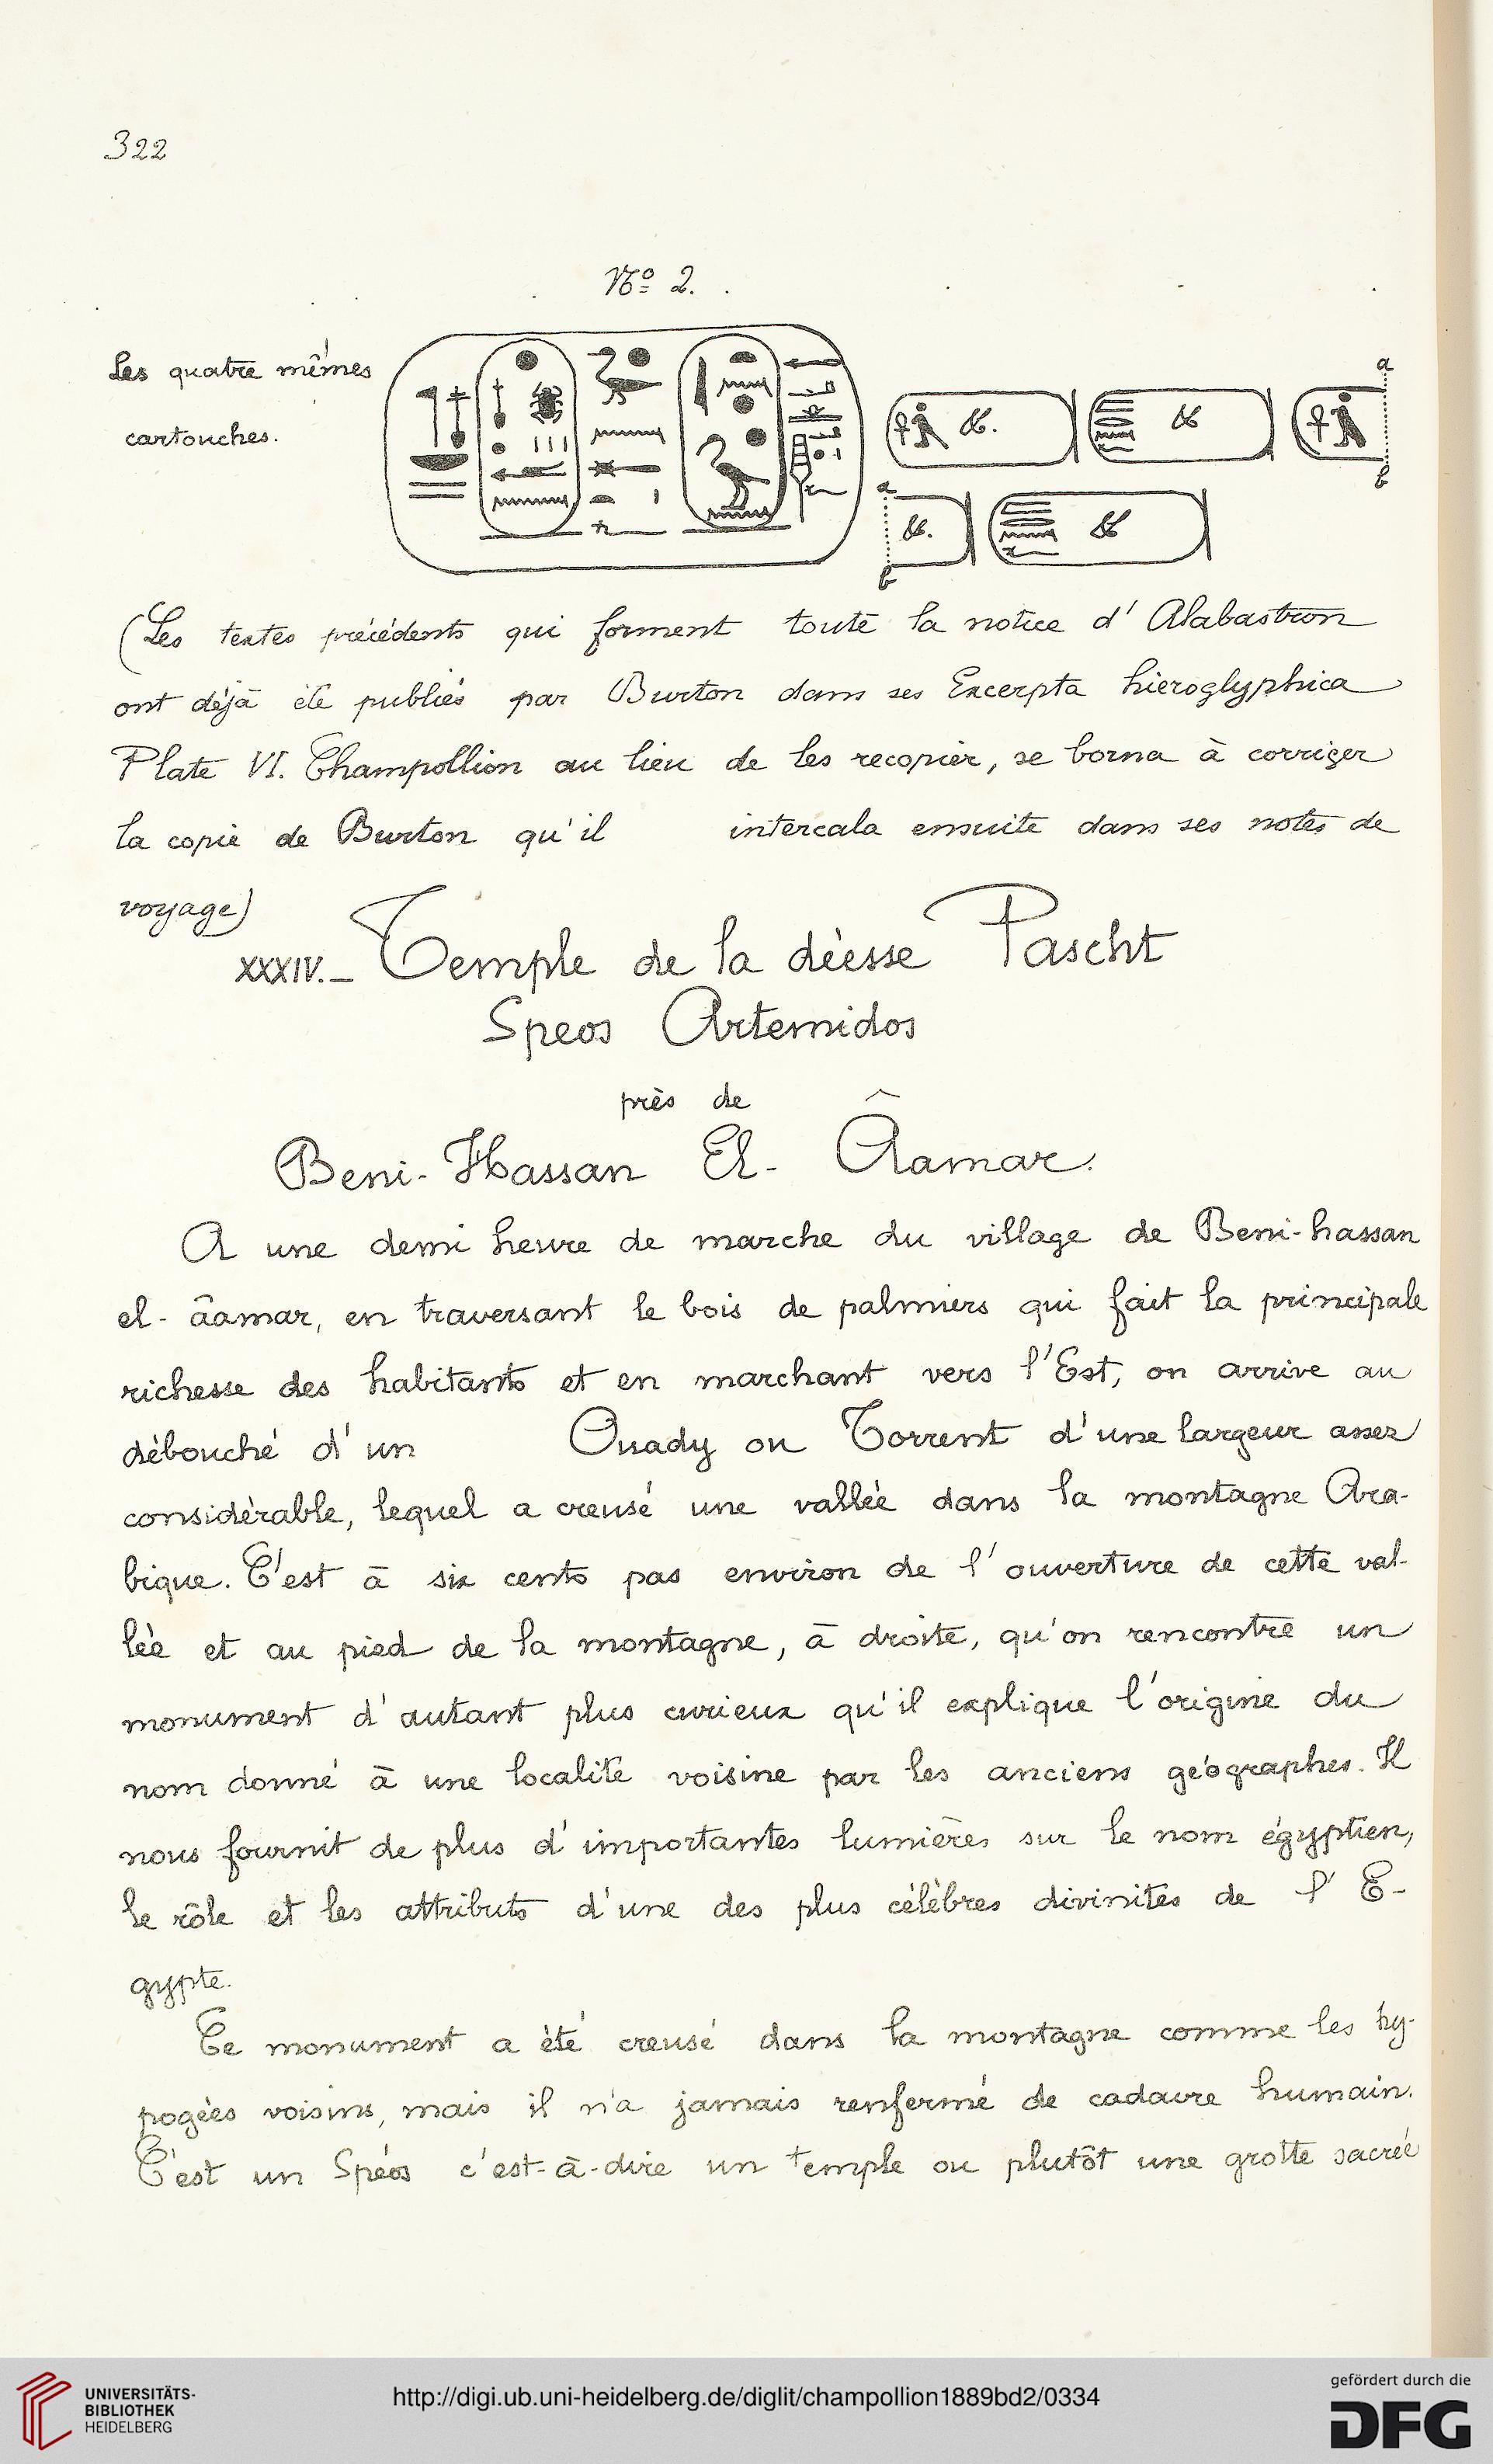 322
Nº 2.
Les quatre mêmes
cartouches.
a
&.
&
b
a
&.
&
b
(Les textes précédents qui forment toute la notice d'Alabastron
ont déjà été publiés par Burton dans ses Excerpta hieroglyphica
Plate VI. Champollion au lieu de les recopier, se borna à corriger
la copie de Burton qu'il intercala ensuite dans ses notes de
voyage)
XXXIV._ Temple de la déesse Pascht
Speos Artemidos
près de
Beni-Hassan El-Âamar.
A une demi heure de marche du village de Beni-hassan
el-âamar, en traversant le bois de palmiers qui fait la principale
richesse des habitants et en marchant vers l'Est, on arrive au
débouché d'un Ouady ou Torrent d'une largeur assez
considérable, lequel a creusé une vallée dans la montagne Ara-
bique. C'est à six cents pas environ de l'ouverture de cette val-
lée et au pied de la montagne, à droite, qu'on rencontre un
monument d'autant plus curieux qu'il explique l'origine du
nom donné à une localité voisine par les anciens géographes. Il
nous fournit de plus d'importantes lumières sur le nom égyptien,
le rôle et les attributs d'une des plus célèbres divinités de l'E-
gypte.
Ce monument a été creusé dans la montagne comme les hy-
pogées voisins, mais il n'a jamais renfermé de cadavre humain.
C'est un Spéos c'est-à-dire un temple ou plutôt une grotte sacrée
UNIVERSITÄTS-
BIBLIOTHEK
HEIDELBERG
http://digi.ub.uni-heidelberg.de/diglit/champollion1889bd2/0334
gefördert durch die
DFG